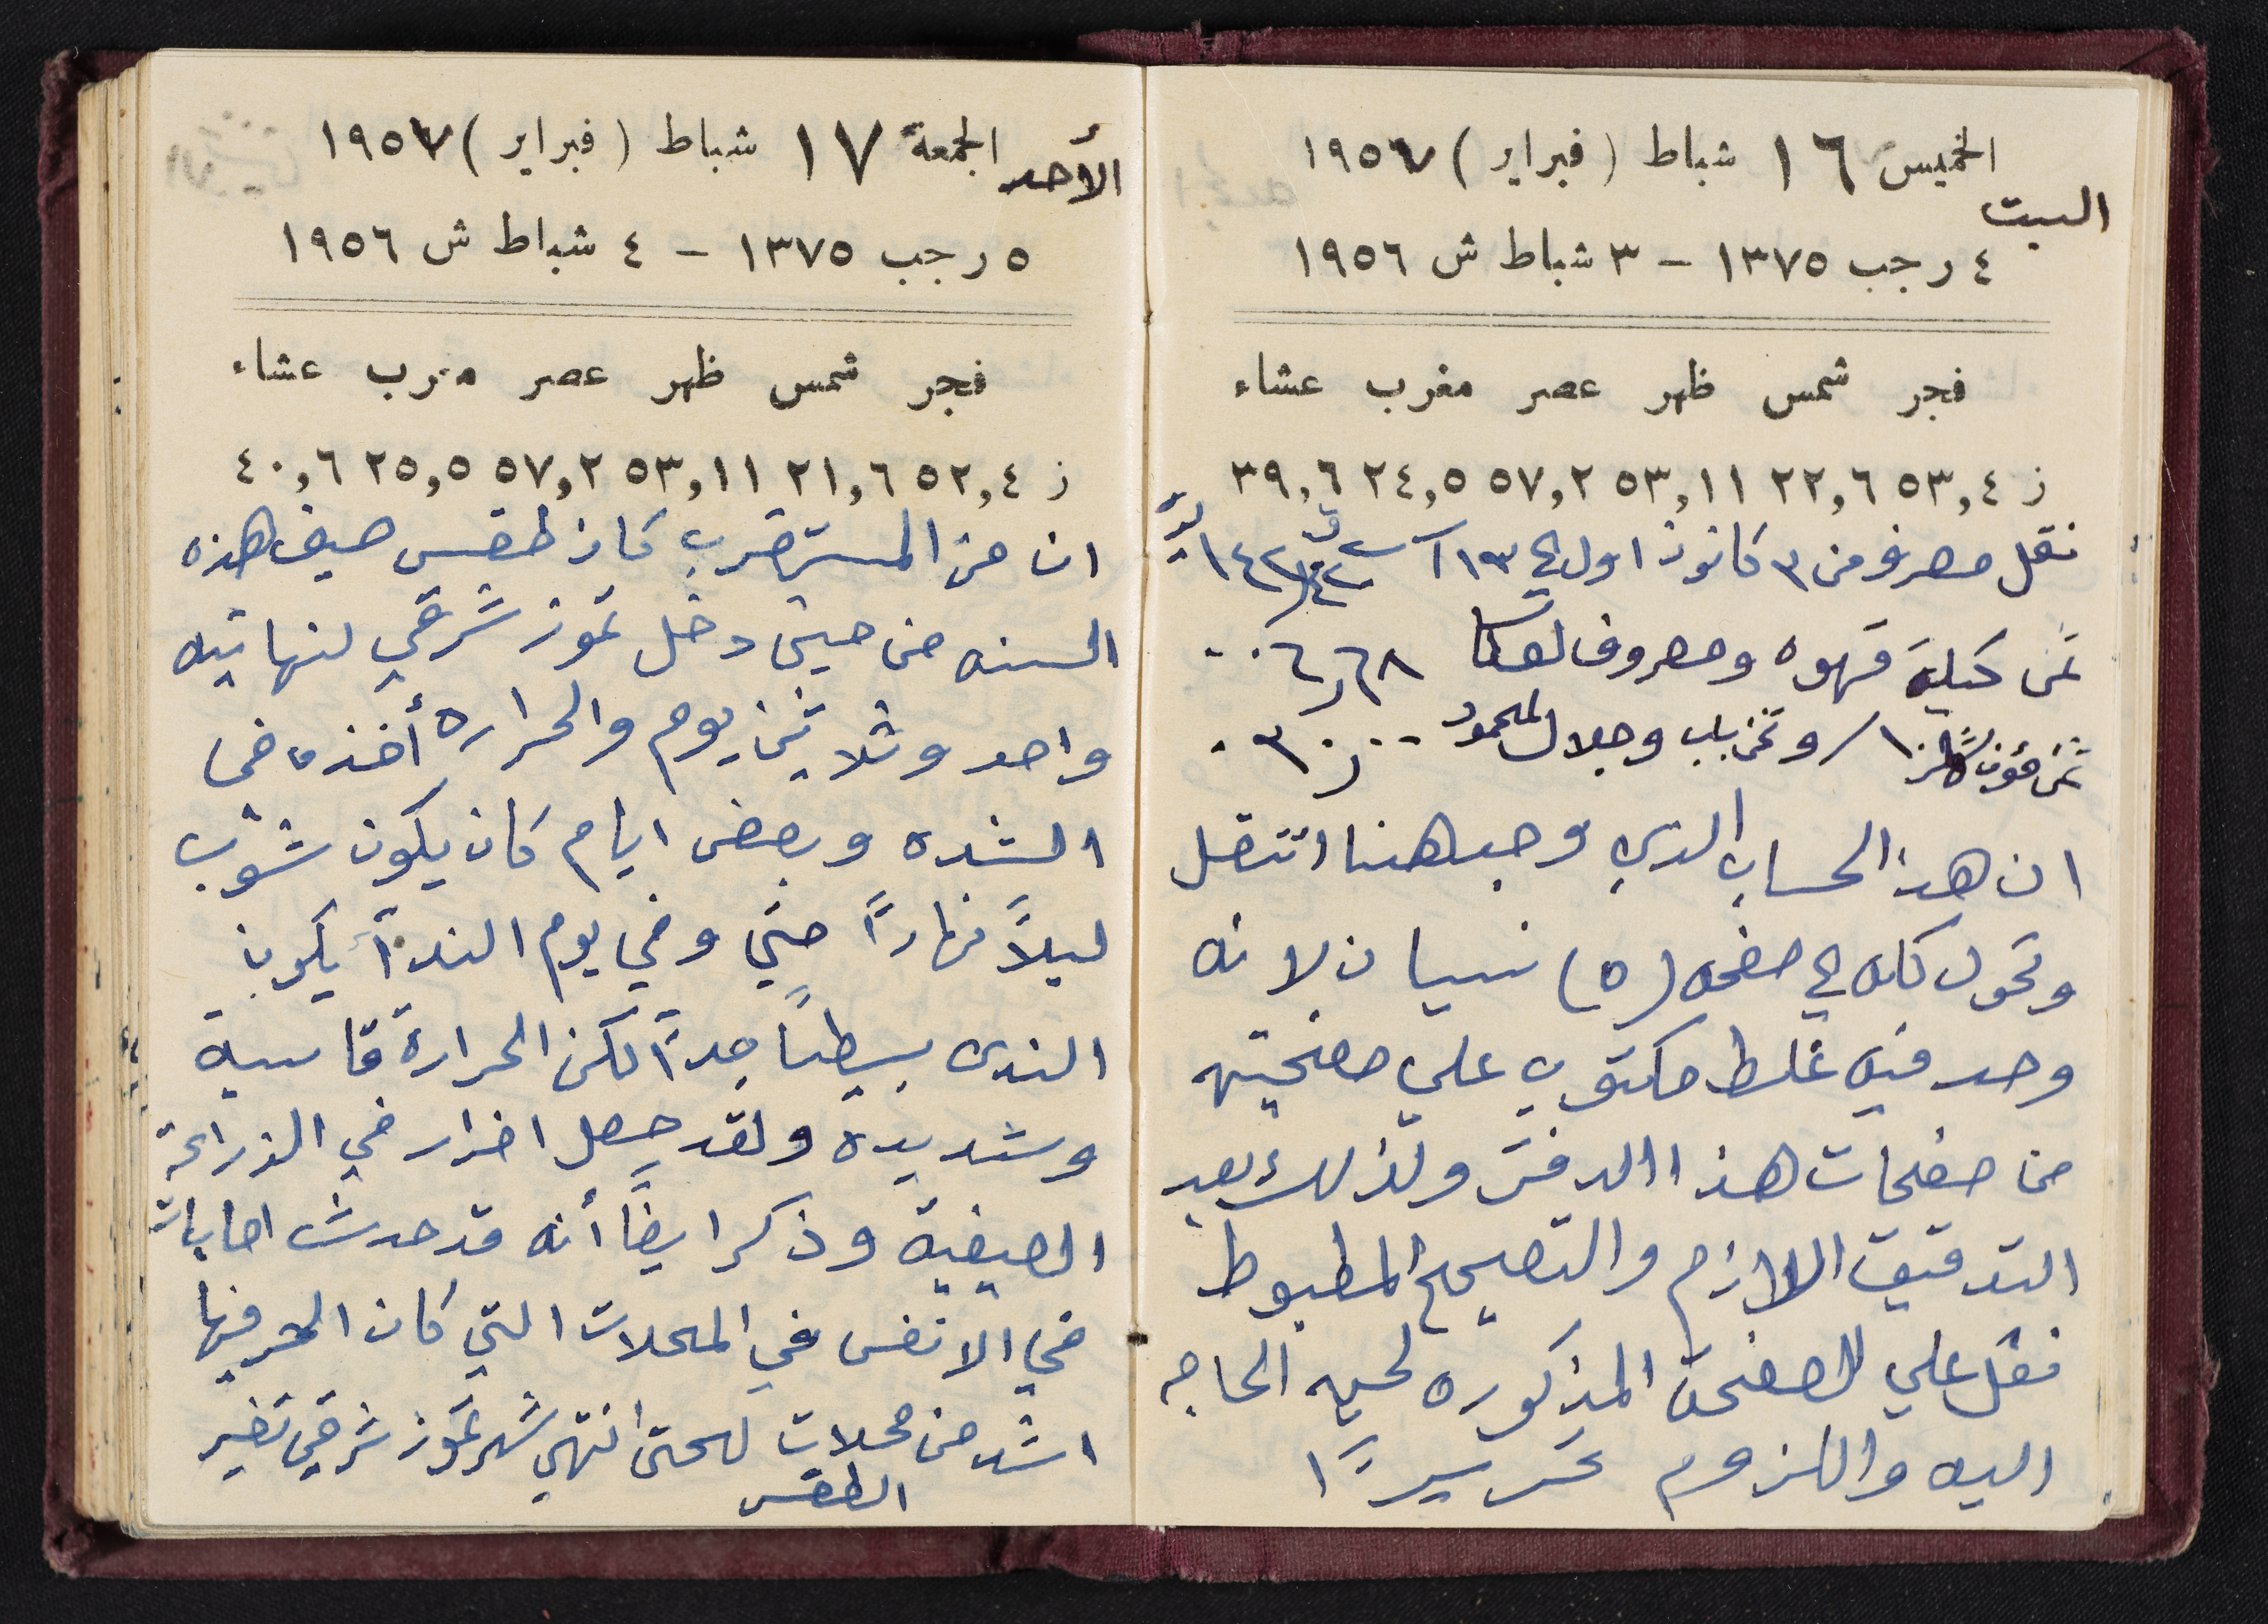 الخميس ١٦ شباط (فبراير) ١٩٥٧
السبت
٤ رجب ١٣٧٥ – ٣ شباط ش ١٩٥٦
فجر شمس ظهر عصر مغرب عشاء
ز ٥٣,٤ ٢٢,٦ ٥٣,١١ ٥٧,٢ ٢٤,٥ ٣٩,٦
نقل مصرف من ٣ كانون اول الى ١٣
ثمن كيلة قهوه ومصروف
ثمن وثمن وجلال المحمود
ان هذا الحساب الذي وجد هنا انتقل
وتحول كله الى صفحه (٥) نسيان لانه
وجد فيه غلط مكتوب على صفحيته
من صفحات هذا الدفتر ولذلك بعد
التدقيق اللازم والتصحيح المطبوط
نقل على الصفحة المذكوره لحين الحاجه
اليه واللزوم تحريرًا
الجمعة ١٧ شباط (فبراير) ١٩٥٧
الأحد
٥ رجب ١٣٧٥ – ٤ شباط ش ١٩٥٦
فجر شمس ظهر عصر مغرب عشاء
ز ٥٢,٤ ٢١,٦ ٥٣,١١ ٥٧,٢ ٢٥,٥ ٤٠,٦
ان من المستغرب كان طقس صيف هذه
السنه من حين دخل تموز شرقي لنهايته
واحد وثلاثين يوم والحراره أخذه في
الشده وبعض ايام كان يكون شوب
ليلاً نهاراً حتى وفي يوم الندا يكون
الندى بسيطاً جداً لكن الحرارة قاسية
وشديده ولقد حصل اضرار في الزراعة
الصيفية وذكر ايضاً أنه قد حدث اصابات
في الانفس في المحلات التي كان الحر فيها
اشد من محلات لحتى انتهى شهر تموز شرقي تغير
الطقس